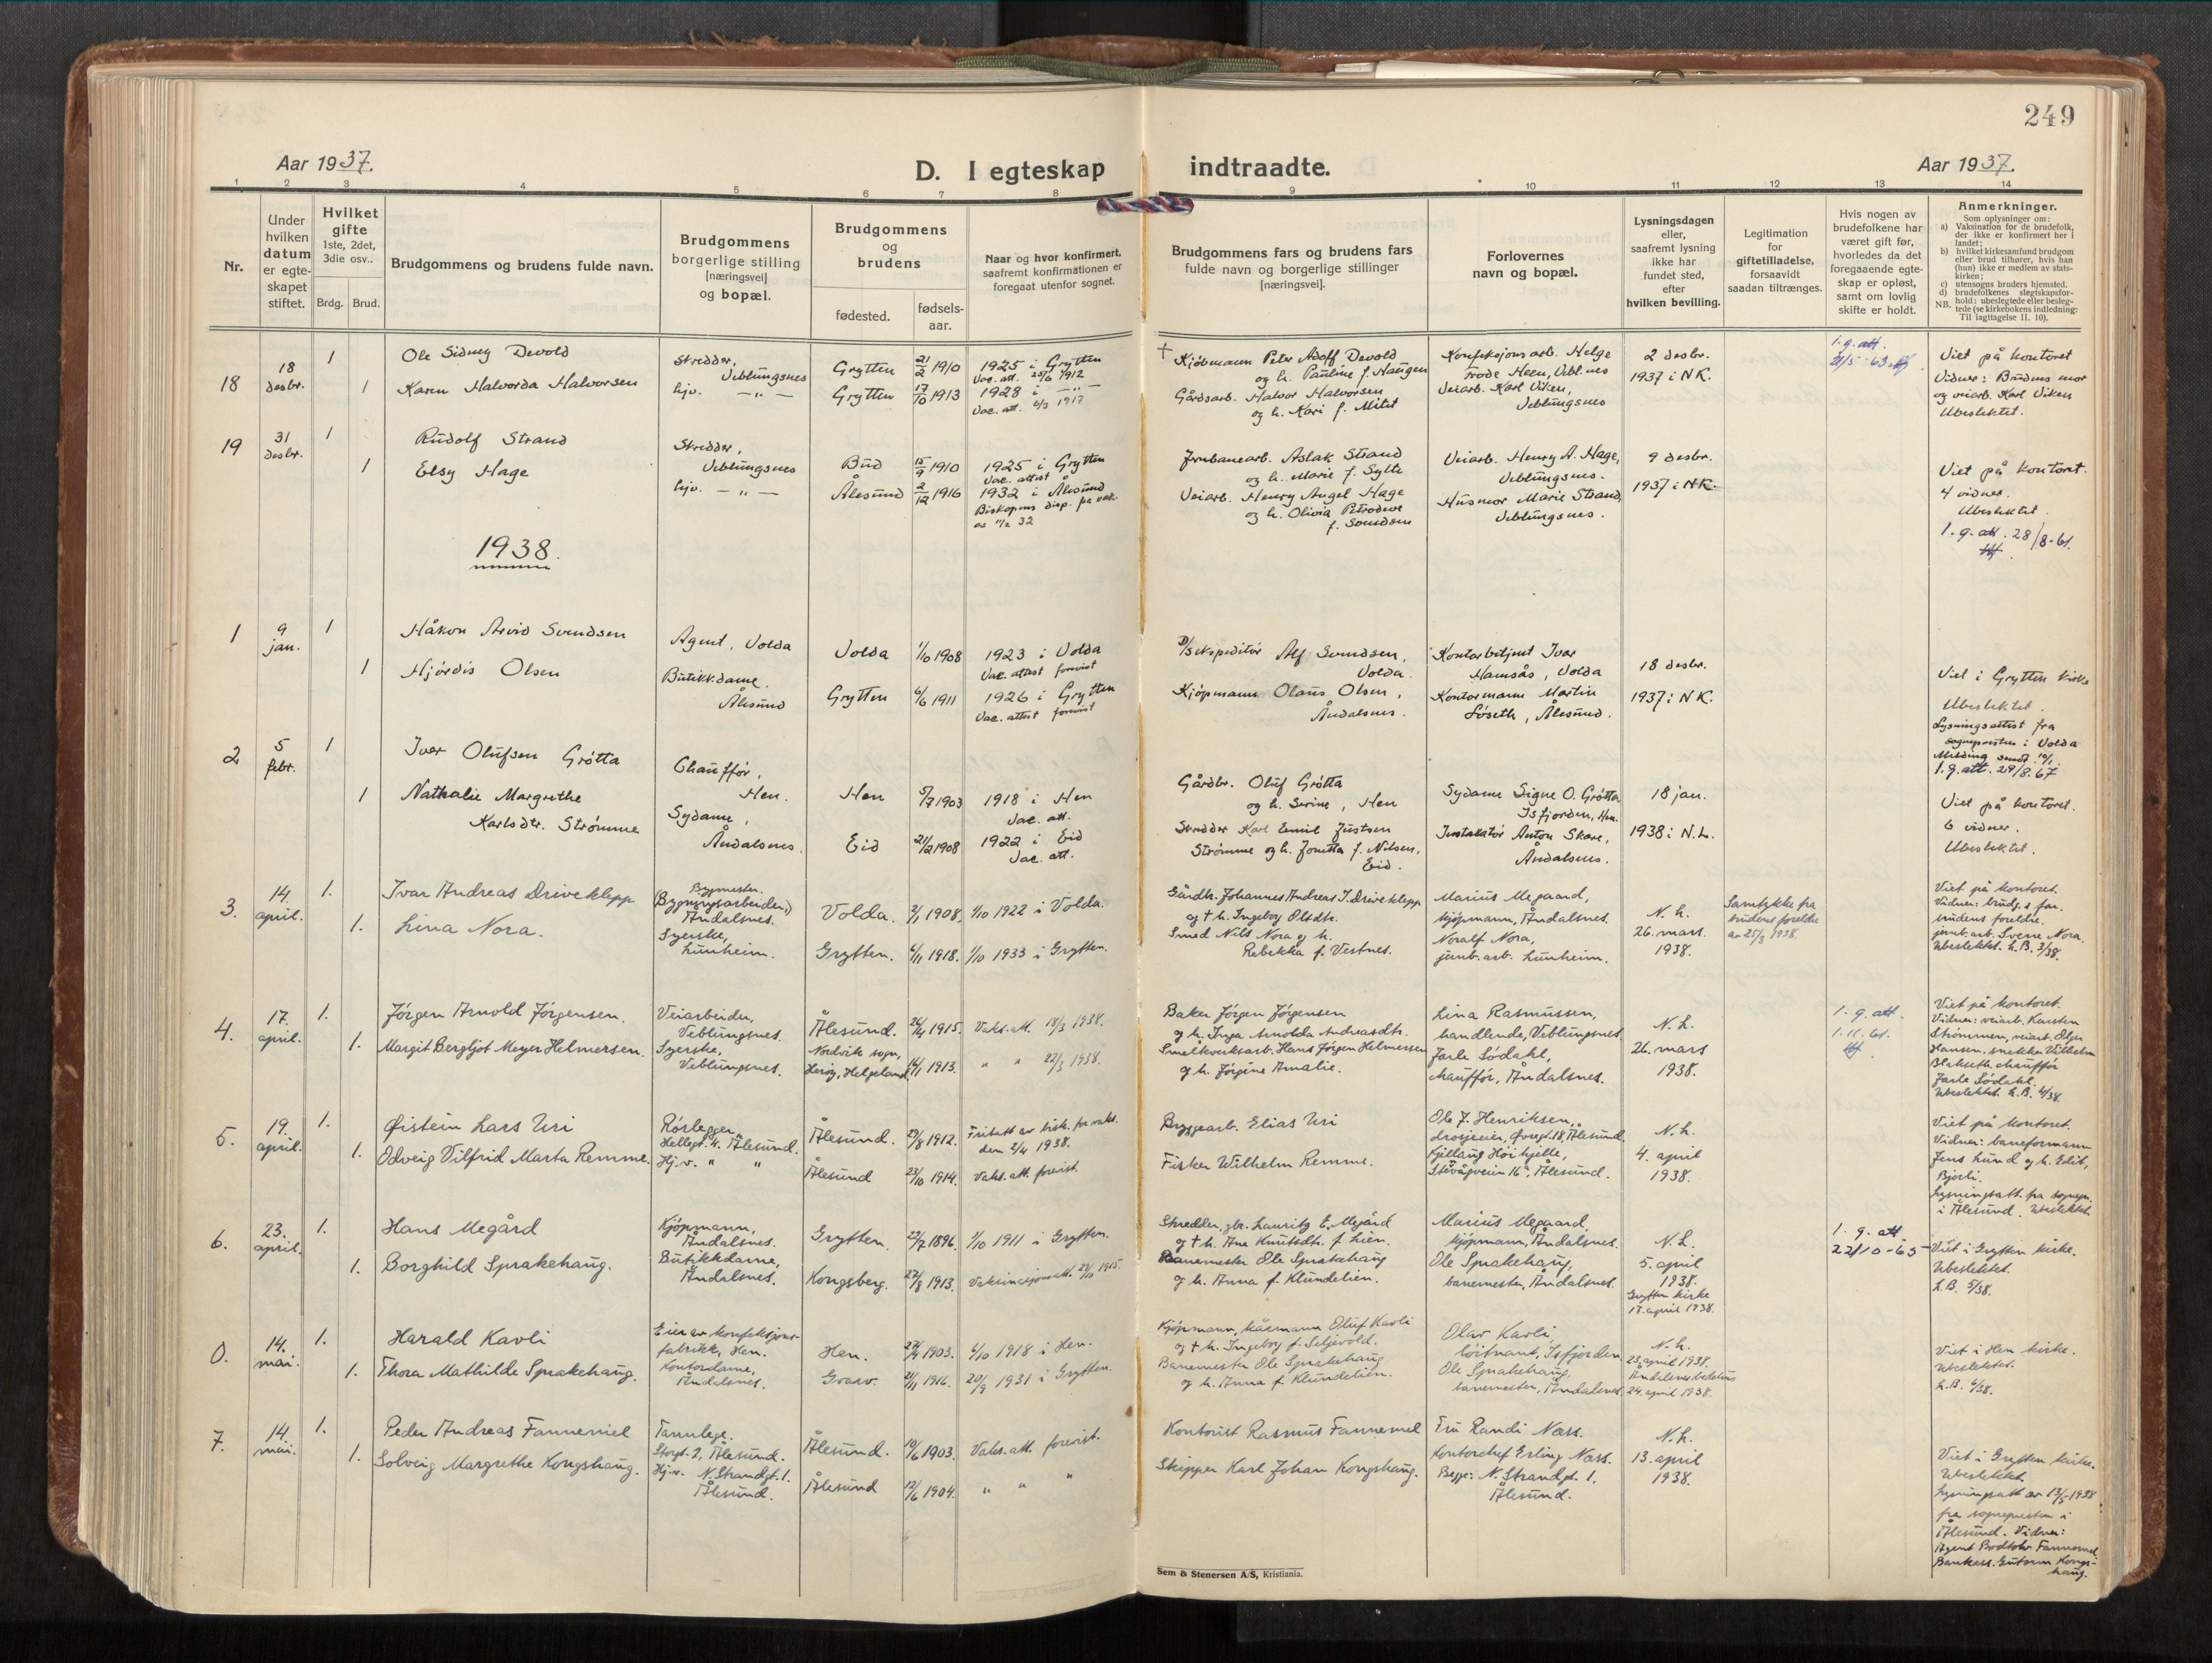 249
Aar 1937.
D. I egteskap indtraadte.
Aar 1937.
1 2 3 4 5 6 7 8 9 10 11 12 13 14
Nr.
Under hvilken datum er egteskapet stiftet.
Hvilket gifte 1ste, 2det, 3die osv..
Brdg. Brud.
Brudgommens og brudens fulde navn.
Brudgommens borgerlige stilling [næringsvei] og bopæl.
Brudgommens og brudens
fødested.
fødsels-aar.
Naar og hvor konfirmert, saafremt konfirmationen er foregaat utenfor sognet.
Brudgommens fars og brudens fars fulde navn og borgerlige stillinger [næringsvei].
Forlovernes navn og bopæl.
Lysningsdagen eller, saafremt lysning ikke har fundet sted, efter hvilken bevilling.
Legitimation for giftetilladelse, forsaavidt saadan tiltrænges.
Hvis nogen av brudefolkene har været gift før, hvorledes da det foregaaende egteskap er opløst, samt om lovlig skifte er holdt.
Anmerkninger.
Som oplysninger om:
a) Vaksination for de brudefolk, der ikke er konfirmert her i landet;
b) hvilket kirkesamfund brudgom eller brud tilhører, hvis han (hun) ikke er medlem av statskirken;
c) utensogns bruders hjemsted.
d) brudefolkenes slegtskapsforhold: ubeslegtede eller beslegtede (se kirkebokens indledning:
NB. Til iagttagelse II. 10).
18
18 desbr.
1
Ole Sidney Devold
Skredder, Veblungsnes
Grytten
21/2 1910
1925 i Grytten
Vac. att. 25/6 1912
1
Karen Halvorda Halvorsen
hjv. — „ —
Grytten
17/10 1913
1928 i — „ —
Vac. att. 6/3 1917
+ Kjøbmann Peter Adolf Devold
og h. Pauline f. Haugen
Gårdsarb. Halvor Halvorsen
og h. Kari f. Mitet
Konfeksjonsarb. Helge
Frode Heen, Vebl.nes
Veiarb. Karl Viken,
Veblungsnes
2 desbr.
1937 i NK.
1. g. att.
21/5-63
Viet på kontoret
Vidner: Brudens mor
og veiarb. Karl Viken
Ubeslektet.
19
31 desbr.
1
Rudolf Strand
Skredder,
Veblungsnes
Bud
15/9 1910
1925 i Grytten
Vac. attist
1
Elsy Hage
hjv. — „ —
Ålesund
2/12 1916
1932 i Ålesund
Biskopens disp. fra vak.
Jernbanearb. Aslak Strand
og h. Marie f. Sylte
Veiarb. Henry Angel Hage
og h. Olivia Petrodeve
f. Svendsen
Veiarb. Henry A. Hage,
Veblungsnes.
Husmor Marie Strand,
Veblungsnes.
9 desbr.
1937 i NK.
Viet på kontoret.
4 vidner.
Ubeslektet.
1. g. att. 28/8-61.
1938.
1
9 jan.
1
Håkon Arvid Svendsen
Agent, Volda
Volda
1/10 1908
1923 i Volda
Vac. attist forevist
1
Hjørdis Olsen
Butikkdame.
Ålesund
Grytten
6/6 1911
1926 i Grytten
Vac. attist forevist
D/Sekspeditør Alf Svendsen,
Volda.
Kjøpmann Olaus Olsen,
Åndalsnes.
Kontorbetjent Ivar
Hamsås, Volda
Kontormann Martin
Løseth, Ålesund.
18 desbr.
1937 i NK.
Viet i Grytten kirke
Ubeslektet.
Lysningsattist fra
sognepresten i Volda
Melding sendt
1. g. att. 29/8.67
2
5 febr.
1
Iver Olufsen Grøtta
Chauffør,
Hen.
Hen
5/7 1903
1918 i Hen
Vac. att.
1
Nathalie Margrethe
Karlsdtr. Strømme
Sydame,
Åndalsnes.
Eid
21/2 1908
1922 i Eid
Vac. att.
Gårdbr. Oluf Grøtta
og h. Serine, Hen
Skredder Karl Emil Justsen
Strømme og h. Jonetta f. Nilsen,
Eid.
Sydame Signe O. Grøtta
Isfjorden, Hen.
Instalatør Anton Skare,
Åndalsnes.
18 jan.
1938 i N.L.
Viet på kontoret.
6 vidner.
Ubeslektet.
3.
14. april.
1.
Ivar Andreas Driveklepp
Bygmester.
(Bygningsarbeider,)
Åndalsnes.
Volda.
2/1 1908.
1/10 1922 i Volda.
1.
Lina Nora.
Syerske,
Lunheim.
Grytten.
6/11 1918.
1/10 1933 i Grytten.
Gårdbr. Johannes Andreas I. Driveklepp
og + h. Ingeborg Olsdtr.
Smed Nils Nora og h.
Rebekka f. Vestnes.
Marius Megaard,
kjøpmann, Åndalsnes.
Noralf Nora,
jernb.arb. Lunheim.
N. L.
26. mars.
1938.
Samtykke fra
brudens foreldre
av 25/3 1938.
Viet på kontoret.
Vidner: brudg.s far.
brudens foreldre.
jernb.arb. Sverre Nora.
Ubeslektet. L.B. 3/38.
4.
17. april.
1.
Jørgen Arnold Jørgensen.
Veiarbeider,
Veblungsnes.
Ålesund.
26/4 1915.
Vaks.att. 18/3 1938.
1.
Margit Bergljot Meyer Helmersen.
Syerske,
Veblungsnes.
Nordvik sogn,
Herøy, Helgeland.
16/1 1913.
" " 22/3 1938.
Baker Jørgen Jørgensen
og h. Inga Arnolda Andreasdtr.
Smeltverksarb. Hans Jørgen Helmersen
og h. Jørgine Amalie.
Lina Rasmussen,
handlende, Veblungsnes
Jarle Sødahl,
chauffør, Åndalsnes.
N. L.
26. mars
1938.
1. g. att.
1.11.61.
Viet på kontoret.
Vidner: veiarb. Karsten
Strømmen, veiarb.
Hansen. snekker Vilhelm
chauffør
Jarle Sødahl.
Ubeslektet. L.B. 4/38.
5.
19. april.
1.
Øistein Lars Uri
Rørlegger,
Hellegt. 4. Ålesund.
Ålesund.
29/8 1912.
Fritatt av bisk. for vaks.
den 2/4 1938.
1.
Odveig Vilfrid Marta Remme.
Hj.v. " "
Ålesund
23/10 1914.
Vaks.att. forevist.
Byggearb. Elias Uri
Fisker Wilhelm Remme.
Ole J. Henriksen,
drosjeeier, Øvregt. 18, Ålesund.
Kjellaug Høikjelle,
Stevågveien 16ᵇ, Ålesund.
N. L.
4. april
1938.
Viet på kontoret.
Vidner: baneformann
Jens Lund og h. Edit,
Bjorli.
Lysningsatt. fra sognepr.
i Ålesund. Ubeslektet.
6.
23. april.
1.
Hans Megård
Kjøpmann,
Åndalsnes.
Grytten.
22/7 1896.
1/10 1911 i Grytten.
1.
Borghild Sprakehaug.
Butikkdame,
Åndalsnes.
Kongsberg.
27/8 1913.
Vaksinasjonsatt. 29/10 1915.
Skredder, gbr. Lauritz E. Megård
og + h. Ane Knutsdtr. f. Lien.
Banemester Ole Sprakehaug
og h. Anna f. Klundelien.
Marius Megaard,
kjøpmann, Åndalsnes.
Ole Sprakehaug,
banemester, Åndalsnes.
N.L.
5. april
1938.
Grytten kirke
17. april 1938.
1. g. att.
22/10-65
Viet i Grytten kirke.
Ubeslektet.
L.B. 5/38.
0.
14. mai.
1.
Harald Kavli
Eier av konfeksjons-
fabrikk, Hen.
Hen.
29/4 1903.
6/10 1918 i Hen.
1.
Thora Mathilde Sprakehaug.
Kontordame,
Åndalsnes.
Gransv.
21/11 1916.
20/9 1931 i Grytten.
Kjøpmann, Oluf Kavli
og + h. Ingeborg f. Seljevold.
Banemester Ole Sprakehaug
og h. Anna f. Klundelien.
Olav Kavli,
løitnant, Isfjorden
Ole Sprakehaug,
banemester, Åndalsnes.
N. L.
23. april 1938.
Åndalsnes bedehus
24. april 1938.
Viet i Hen kirke.
Ubeslektet.
L.B. 6/38.
7.
14. mai.
1.
Peder Andreas Fannemel
Tannlege.
Storgt. 2, Ålesund.
Ålesund.
10/6 1903.
Vaks.att. forevist.
1.
Solveig Margrethe Kongshaug.
Hj.v. N. Strandgt. 1.
Ålesund.
Ålesund
12/6 1904.
" " "
Kontorist Rasmus Fannemel
Skipper Karl Johan Kongshaug.
Fru Randi Næss.
Kontorchef Erling Næss.
Begge: N. Strandgt. 1.
Ålesund.
N.L.
13. april
1938.
Viet i Grytten kirke.
Ubeslektet.
Lysningsatt. av 13/5-1938
fra sognepresten i
Ålesund. Vidner:
Agent Bodtolv Fannemel
Bankass. Guttorm Kongs-
haug.
Sem & Stenersen A/S, Kristiania.